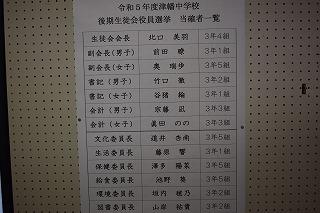 令和5年度津幡中学校
後期生徒会役員選挙 当確者一覧
生徒会会長 北口 美羽 3年4組
副会長(男子) 前田 瞭 3年1組
副会長(女子) 奥 瑞歩 3年5組
書記(男子) 竹口 徹 3年2組
書記(女子) 谷猪 綸 3年1組
会計(男子) 宗藤 凪 3年3組
会計(女子) 眞田 のの 3年3組
文化委員長 道井 杏南 3年5組
生活委員長 藤原 響 3年1組
保健委員長 澤多 陽菜 3年5組
給食委員長 池野 葵 3年3組
環境委員長 垣内 穂乃 3年2組
図書委員長 山岸 祐貴 3年2組